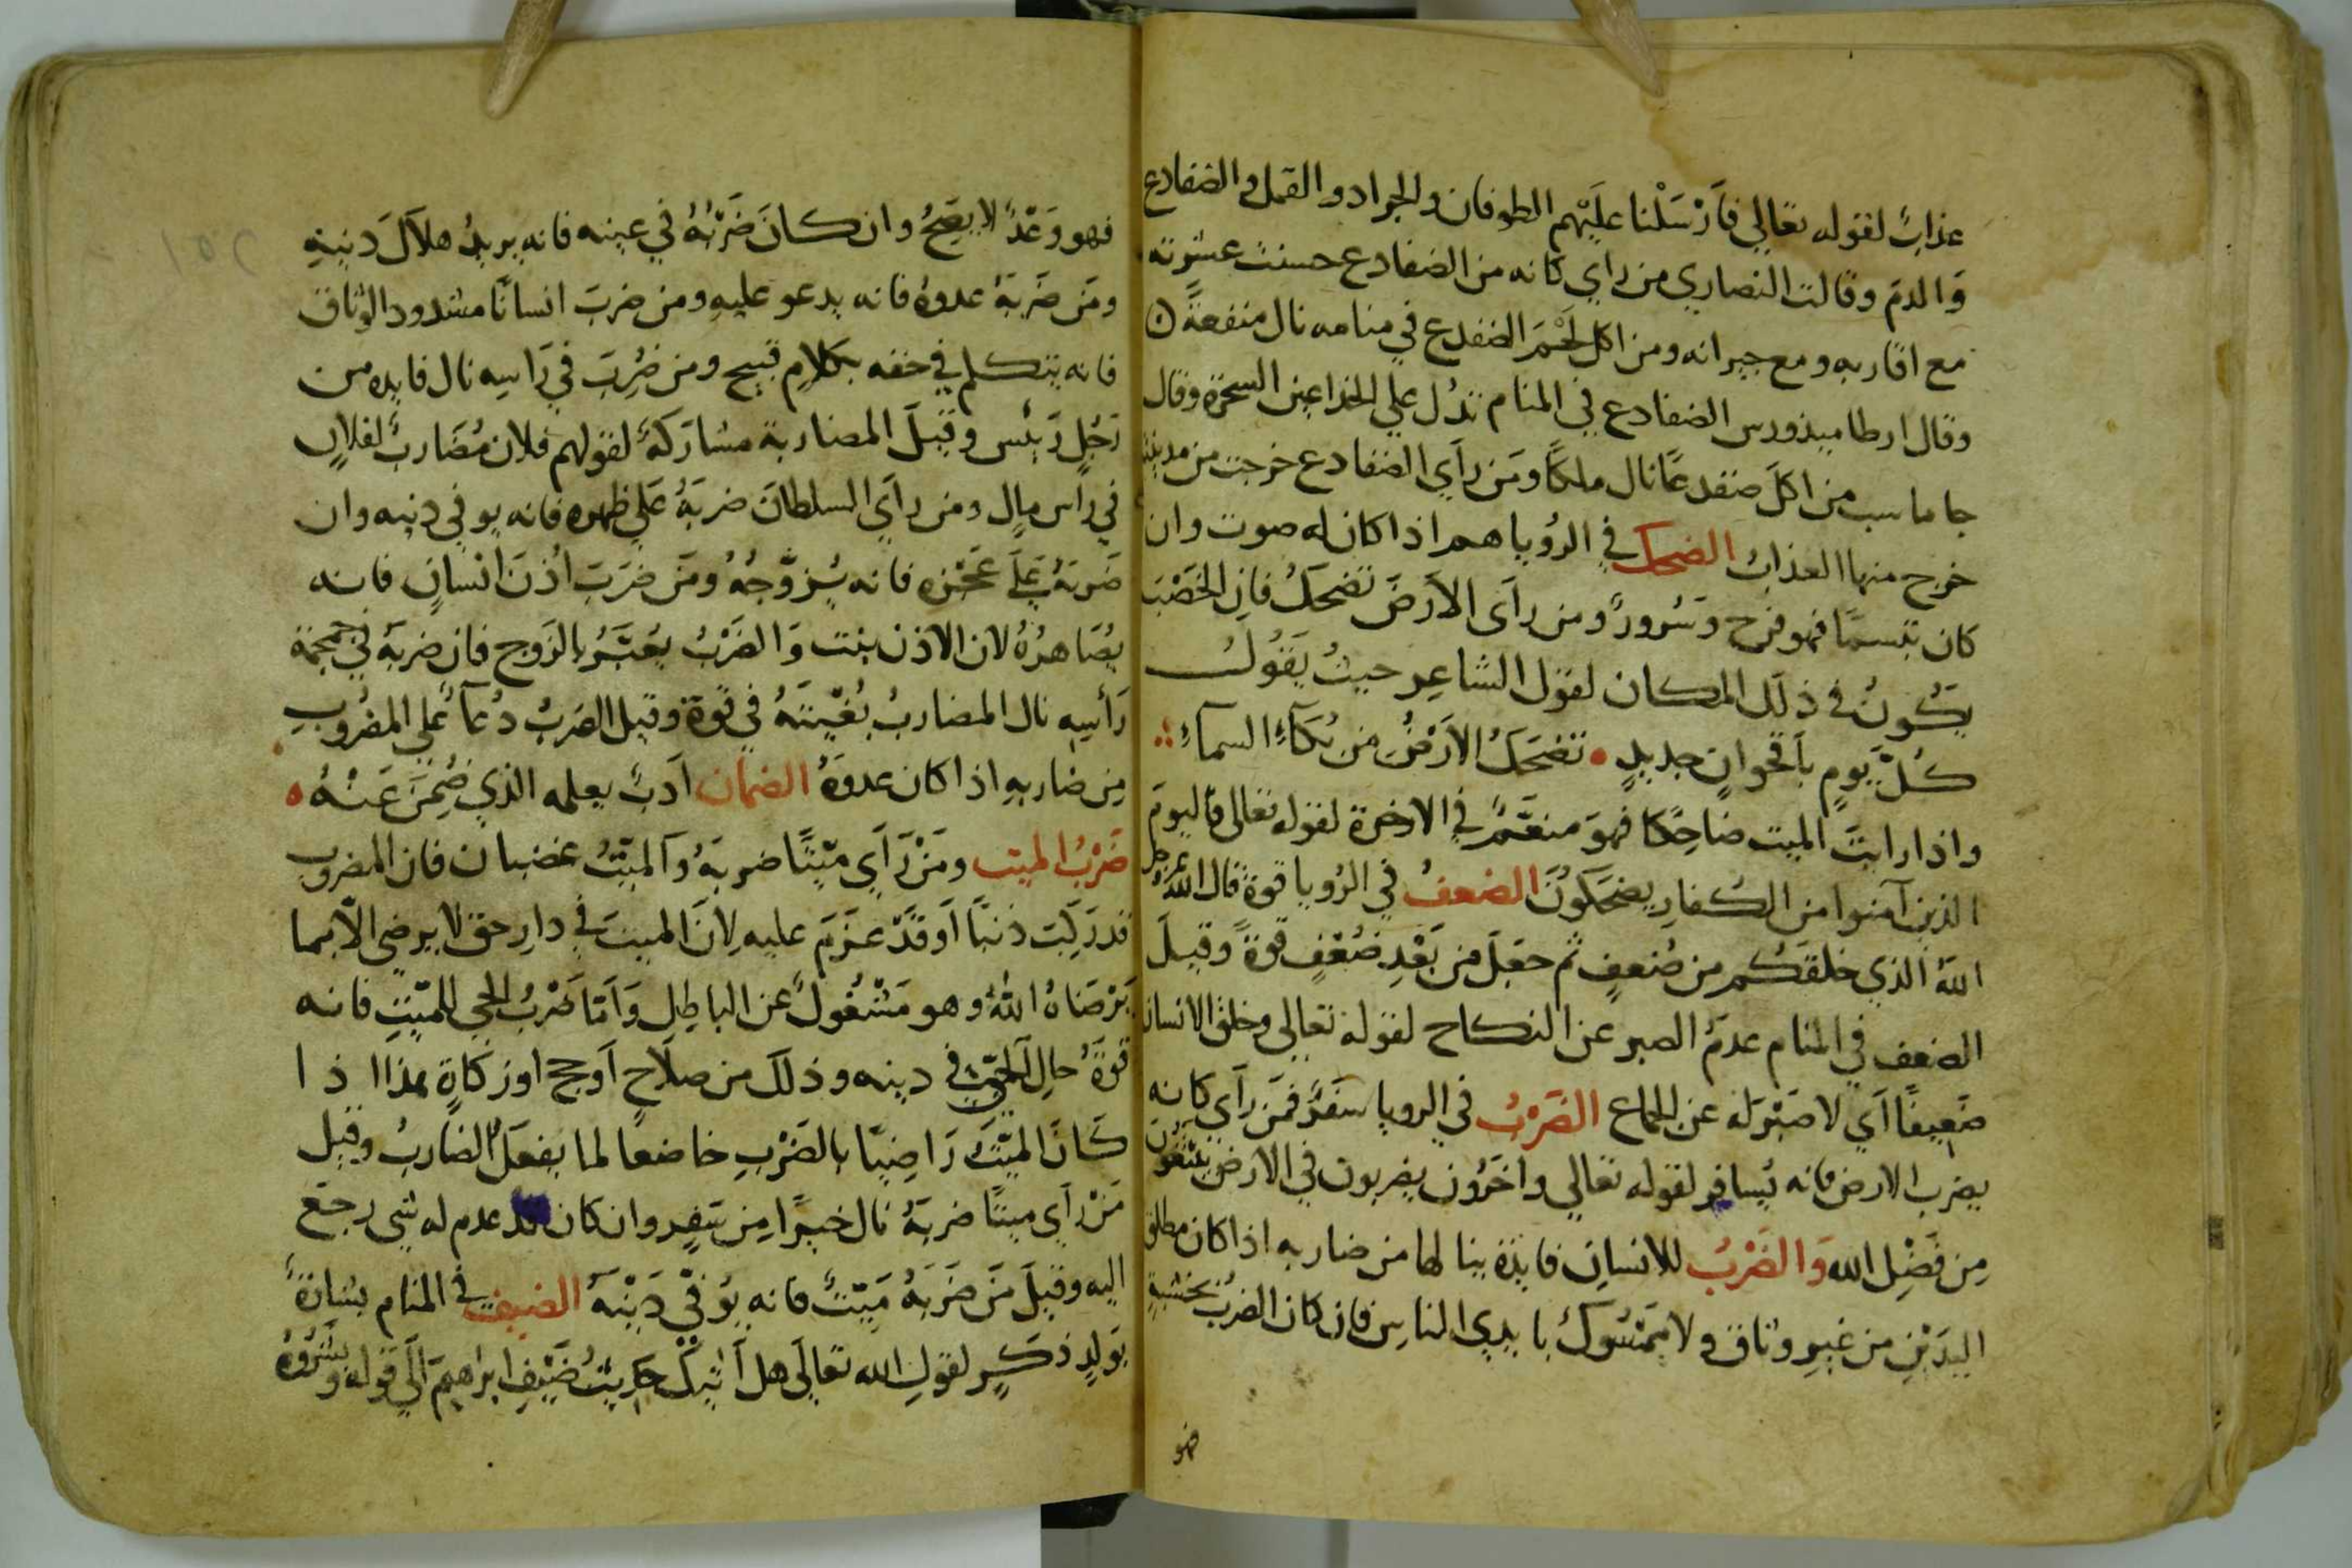 عذابٌ لقوله تعالي فأرْسَلْنا عليْهم الطوفان والجراد والقمل والضفادع
وَالدمَ وقالت النصاري من راي كانه من الضفادع حسنت عشرته
مع اقاربه ومع جيرانه ومن اكل لحْمَ الضفدع في منامه نال منفعةً
وقال ارطاميذورس الضفادع في المنام تدُل علي الخداعين السحرة وقال
جاماسب من اكلَ ضفدعًا نال ملكًا ومَن رأي الضفادع خرجت من مدينة
خرج منها العذاب الضحك في الرُويا هم اذا كان له صوت وان
كان تبسمًا فهو فرح وسُرورٌ ومن رأى الأرضَ تضحكُ فان الخصْبَ
يكُونُ في ذلك المكان لقول الشاعِر حيثُ يَقُولُ
كُلّ يَومٍ بأقحوانٍ جديدٍ ٥ تضحَكُ الأرْضُ من بُكآءِ السمآءِ
واذا رايتَ الميت ضاحِكا فهوَ منعَّمٌ في الاخرة لقوله تعالى فاليومَ
الذين آمنوا من الكُفارِ يضحَكونَ الضعفُ في الرُويا قوة قال الله عز وجل
اللهُ الذي خلقكُم من ضُعفٍ ثم جعَلَ من بَعْدِ ضُعْفٍ قوةً وقيلَ
الضعف في المنام عدمُ الصبر عن النكاح لقوله تعالى وخلق الانسان
ضَعِيفًا اَي لا صَبْرَ له عن الجماع الضَرْبُ في الرويا سَفَرٌ فمَن رأَي كانه
يضرب الارض فانه يُسافر لقوله تعالي واخَرُون يضربون في الارض يبتَغُون
مِن فَضْلِ الله وَالضَرْبُ للانسانِ فايدة ينالها من ضاربه اذا كان مطلق
اليدَيْنِ من غير وثاق ولا مَمْسُوك بايدي الناسِ فان كان الضربُ بخشبةٍ
فهو
فهو وَعْدٌ لا يصِحُ وان كانَ ضَرْبُهُ في عينه فانه يريدُ هلاَكَ دينهِ
ومَن ضَربَهُ عدوهُ فانه يدعو عليهِ ومن ضربَ انسانًا مشدود الوثاق
فانه يتكلم في حقه بكلامٍ قبيح ومن ضُرِبَ في رَاسِه نال فايده من
رَجُلٍ رَئيس وقيلَ المضاربة مشارَكةٌ لقولهم فلان مُضَاربٌ لفلانٍ
في رأس مالٍ ومن رأي السلطانَ ضربَهُ عَلي ظهره فانه يوفي دينه وان
ضَربَهُ عَلَى عَجْزه فانه يُزوِّجُهُ ومَن ضرَبَ اُذنَ انْسانٍ فانه
يُصَاهرُهُ لان الاذن بنت وَالضَرْبُ يُعَبَّرُ بالزَوج فان ضربَهُ في جمجمة
رَأسِهِ نال المضاربُ بُغْيتَهُ في قُوة وقيل الضَربُ دُعآءٌ علي المضرُوبِ
مِن ضاربهِ اذا كان عدوَهُ الضمان اَدبٌ يعلمه الذي ضُمِنَ عَنْهُ ٥
ضَرْبُ الميت ومَنْ رَأي ميّتًا ضربَهُ وَالميّتُ غضبان فان المضروب
قد رَكِبَ ذنبًا اَو قَدْ عَزَمَ عليهِ لأنَ الميتَ في دارِ حق لا يرضى الاّ بما
يَرْضَاهُ اللهُ وهو مَشْغُولٌ عن الباطِلِ وَاَمّا ضَرْبُ الحي للميّتِ فانه
قوةُ حالِ الحيّ في دينه وذلكَ من صلاَحٍ اَو حج اوزكاةٍ هذا اذا
كَانَ الميّتُ رَاضِيًا بالضَرْبِ خاضعا لما يفعَلُ الضاربُ وقيل
مَنْ رَأي ميتًا ضربَهُ نال خيرًا مِن سَفرٍ وان كان قد عدم له شي رجَع
اليه وقيلَ مَن ضَرَبَهُ مَيِّتٌ فانه يُوفّي دَيْنَهُ الضيف في المنام بشارةٌ
بوَلدٍ ذكَرٍ لقولِ الله تعالَى هل اَتيكَ حَدِيثُ ضَيْفِ ابراهيمَ الَي قوله وبَشَّرُوهُ